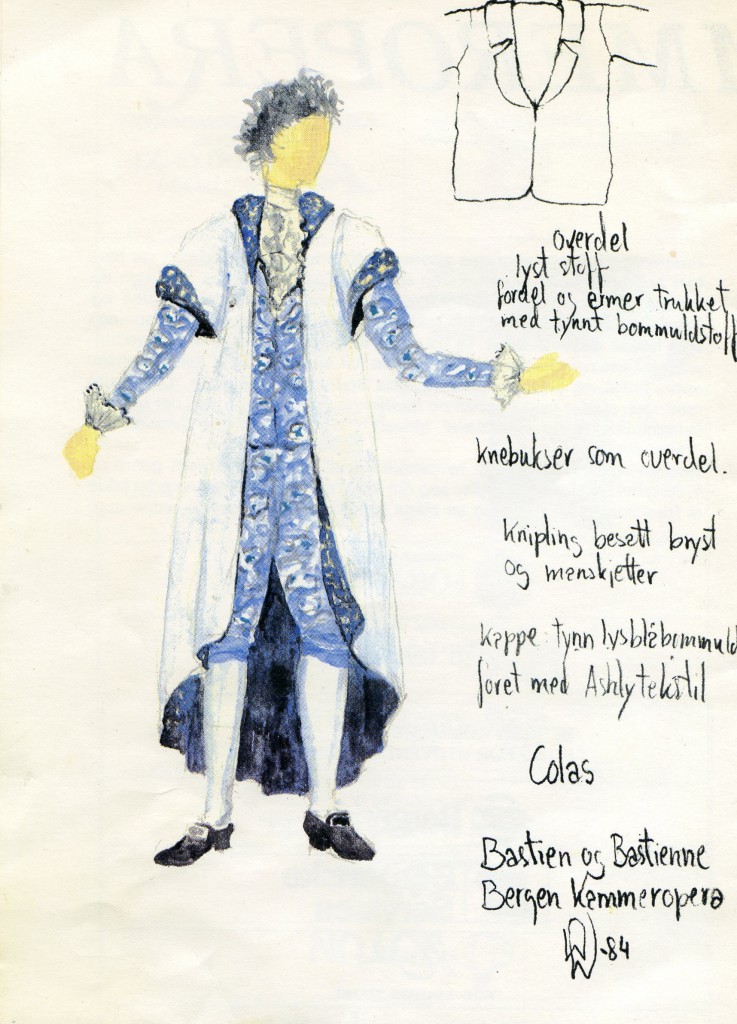 overdel
lyst stoff
fordel og ermer trukket
med tynnt bommuldstoff
knebukser som overdel.
Knipling besatt bryst
og manskjetter
Kappe: tynn lysblåbommuld
foret med Ashly tekstil
Colas
Bastien og Bastienne
Bergen Kammeropera
-84